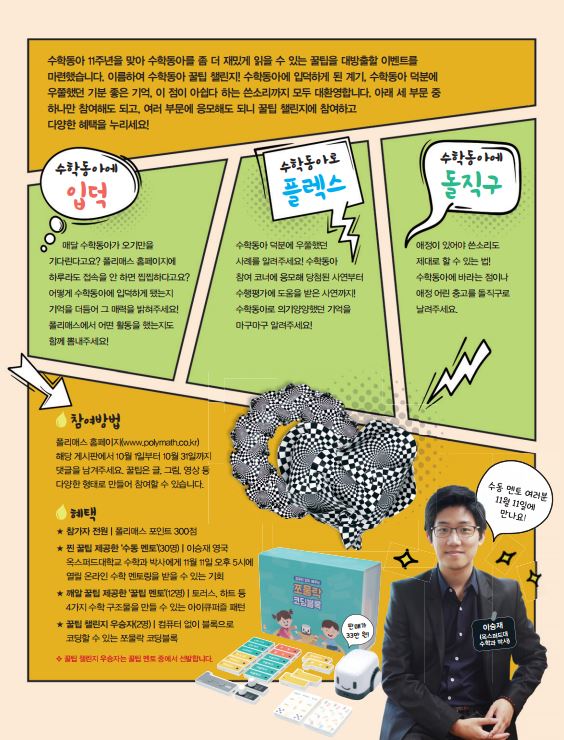 수학동아 11주년을 맞아 수학동아를 좀 더 재밌게 읽을 수 있는 꿀팁을 대방출할 이벤트를
마련했습니다. 이름하여 수학동아 꿀팁 챌린지! 수학동아에 입덕하게 된 계기, 수학동아 덕분에
우쭐했던 기분 좋은 기억, 이 점이 아쉽다 하는 쓴소리까지 모두 대환영합니다. 아래 세 부문 중
하나만 참여해도 되고, 여러 부문에 응모해도 되니 꿀팁 챌린지에 참여하고
다양한 혜택을 누리세요!
수학동아에
입덕
매달 수학동아가 오기만을
기다린다고요? 폴리매스 홈페이지에
하루라도 접속을 안 하면 찝찝하다고요?
어떻게 수학동아에 입덕하게 됐는지
기억을 더듬어 그 매력을 밝혀주세요!
폴리매스에서 어떤 활동을 했는지도
함께 뽐내주세요!
수학동아로
플렉스
수학동아 덕분에 우쭐했던
사례를 알려주세요! 수학동아
참여 코너에 응모해 당첨된 사연부터
수행평가에 도움을 받은 사연까지!
수학동아로 의기양양했던 기억을
마구마구 알려주세요!
수학동아에
돌직구
애정이 있어야 쓴소리도
제대로 할 수 있는 법!
수학동아에 바라는 점이나
애정 어린 충고를 돌직구로
날려주세요.
참여방법
폴리매스 홈페이지(www.polymath.co.kr)
해당 게시판에서 10월 1일부터 10월 31일까지
댓글을 남겨주세요. 꿀팁은 글, 그림, 영상 등
다양한 형태로 만들어 참여할 수 있습니다.
혜택
★ 참가자 전원 | 폴리매스 포인트 300점
★ 찐 꿀팁 제공한 '수동 멘토'(30명) | 이승재 영국
옥스퍼드대학교 수학과 박사에게 11월 11일 오후 5시에
열릴 온라인 수학 멘토링을 받을 수 있는 기회
★ 깨알 꿀팁 제공한 '꿀팁 멘토'(12명) | 토러스, 하트 등
4가지 수학 구조물을 만들 수 있는 아이큐퍼즐 패턴
★ 꿀팁 챌린지 우승자(2명) | 컴퓨터 없이 블록으로
코딩할 수 있는 쪼물락 코딩블록
❖ 꿀팁 챌린지 우승자는 꿀팁 멘토 중에서 선발합니다.
쪼물락
코딩블록
판매가
33만 원!
수동 멘토 여러분
11월 11일에
만나요!
이승재
(옥스퍼드대
수학과 박사)